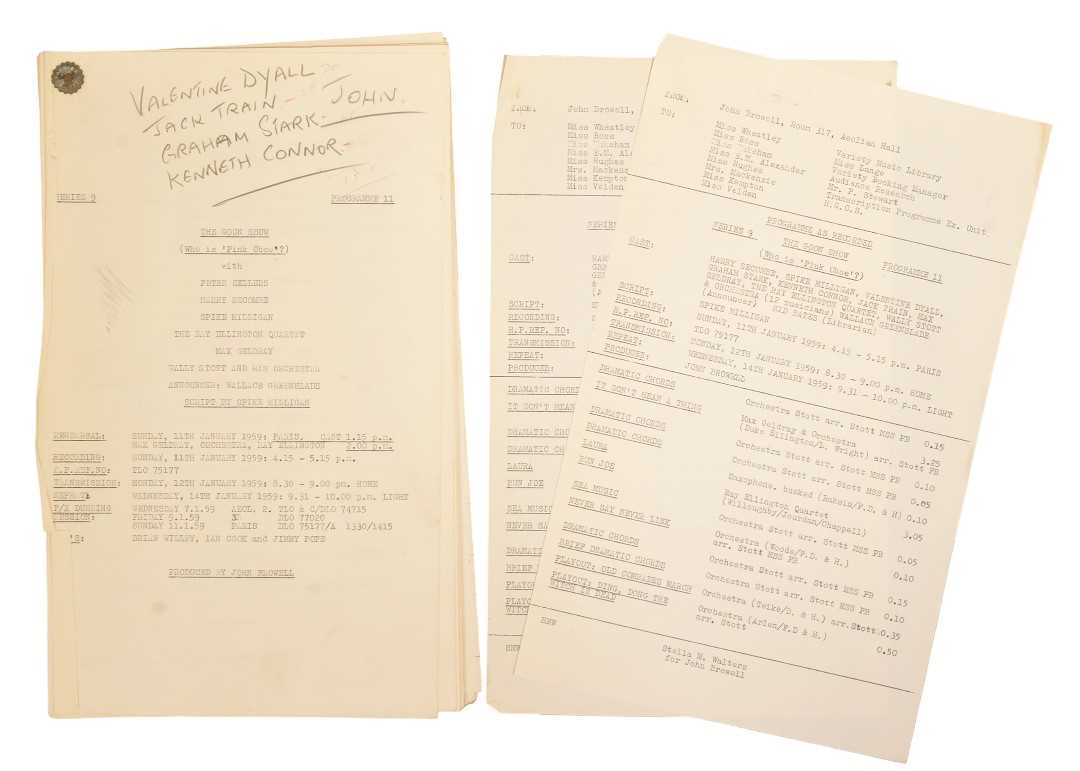 VALENTINE DYALL
JACK TRAIN - JOHN.
GRAHAM STARK-
KENNETH CONNOR-
SERIES 9 PROGRAMME 11
THE GOON SHOW
(Who is 'Pink Oboe'?)
with
PETER SELLERS
HARRY SECOMBE
SPIKE MILLIGAN
THE RAY ELLINGTON QUARTET
MAX GELDRAY
WALLY STOTT AND HIS ORCHESTRA
ANNOUNCER: WALLACE GREENSLADE
SCRIPT BY SPIKE MILLIGAN
REHEARSAL: SUNDAY, 11TH JANUARY 1959: PARIS. CAST 1.15 p.m.
MAX GELDRAY, ORCHESTRA, RAY ELLINGTON 2.00 p.m.
RECORDING: SUNDAY, 11TH JANUARY 1959: 4.15 - 5.15 p.m.
R.P.REF.NO: TLO 75177
TRANSMISSION: MONDAY, 12TH JANUARY 1959: 8.30 - 9.00 pm. HOME
REPEAT: WEDNESDAY, 14TH JANUARY 1959: 9.31 - 10.00 p.m. LIGHT
P/X DUBBING WEDNESDAY 7.1.59 AEOL. 2. TLO & C/DLO 74715
SESSION: FRIDAY 9.1.59 DLO 77020
SUNDAY 11.1.59 PARIS DLO 75177/A 1330/1415
'S: BRIAN WILLEY, IAN COOK and JIMMY POPE
PRODUCED BY JOHN BROWELL
FROM: John Browell,
TO: Miss Wheatley
Miss Boss
Miss
Miss E.M. Al
Miss Hughes
Mrs. Mackenz
Miss Kempton
Miss Velden
SERIE
CAST:
SCRIPT:
RECORDING:
R.P.REF. NO:
TRANSMISSION:
REPEAT:
PRODUCER:
DRAMATIC CHORD
IT DON'T MEAN
DRAMATIC CHO
DRAMATIC CH
LAURA
BUN JOE
SEA MUSIC
NEVER SA
DRAMATI
BRIEF
PLAYO
PLAYO
WITC
HMW
FROM: John Browell, Room 317, Aeolian Hall
TO: Miss Wheatley Variety Music Library
Miss Boss Miss Lange
Miss Variety Booking Manager
Miss E.M. Alexander Audience Research
Miss Hughes Mr. P. Stewart
Mrs. Mackenzie Transcription Programme Ex. Unit
Miss Kempton H.G.O.S.
Miss Velden
PROGRAMME AS RECORDED
SERIES 9 THE GOON SHOW PROGRAMME 11
(Who is 'Pink Oboe'?)
CAST: HARRY SECOMBE, SPIKE MILLIGAN, VALENTINE DYALL,
GRAHAM STARK, KENNETH CONNOR, JACK TRAIN, MAX
GELDRAY, THE RAY ELLINGTON QUARTET, WALLY STOTT
& ORCHESTRA (12 musicians) WALLACE GREENSLADE
(Announcer) SID BATES (Librarian)
SCRIPT: SPIKE MILLIGAN
RECORDING: SUNDAY, 11TH JANUARY 1959: 4.15 - 5.15 p.m. PARIS
R.P.REF. NO: TLO 75177
TRANSMISSION: MONDAY, 12TH JANUARY 1959: 8.30 - 9.00 p.m. HOME
REPEAT: WEDNESDAY, 14TH JANUARY 1959: 9.31 - 10.00 p.m. LIGHT
PRODUCER: JOHN BROWELL
DRAMATIC CHORDS Orchestra Stott arr. Stott MSS PB 0.15
IT DON'T MEAN A THING Max Geldray & Orchestra
(Duke Ellington/L. Wright) arr. Stott PB 3.25
DRAMATIC CHORDS Orchestra Stott arr. Stott MSS PB 0.10
DRAMATIC CHORDS Orchestra Stott arr. Stott MSS PB 0.05
LAURA Saxophone, busked (Raksin/F.D. & H) 0.10
BUN JOE Ray Ellington Quartet
(Willoughby/Jourdan/Chappell) 3.05
SEA MUSIC Orchestra Stott arr. Stott MSS PB 0.05
NEVER SAY NEVER LINK Orchestra (Woods/F.D. & H.)
arr. Stott MSS PB 0.10
DRAMATIC CHORDS Orchestra Stott arr. Stott MSS PB 0.15
BRIEF DRAMATIC CHORDS Orchestra Stott arr. Stott MSS PB 0.10
PLAYOUT: OLD COMRADES MARCH Orchestra (Teike/D. & H.) arr. Stott 0.35
PLAYOUT: DING, DONG THE Orchestra (Arlen/F.D & H.)
WITCH IS DEAD arr. Stott 0.50
HMW Stella M. Walters
for John Browell